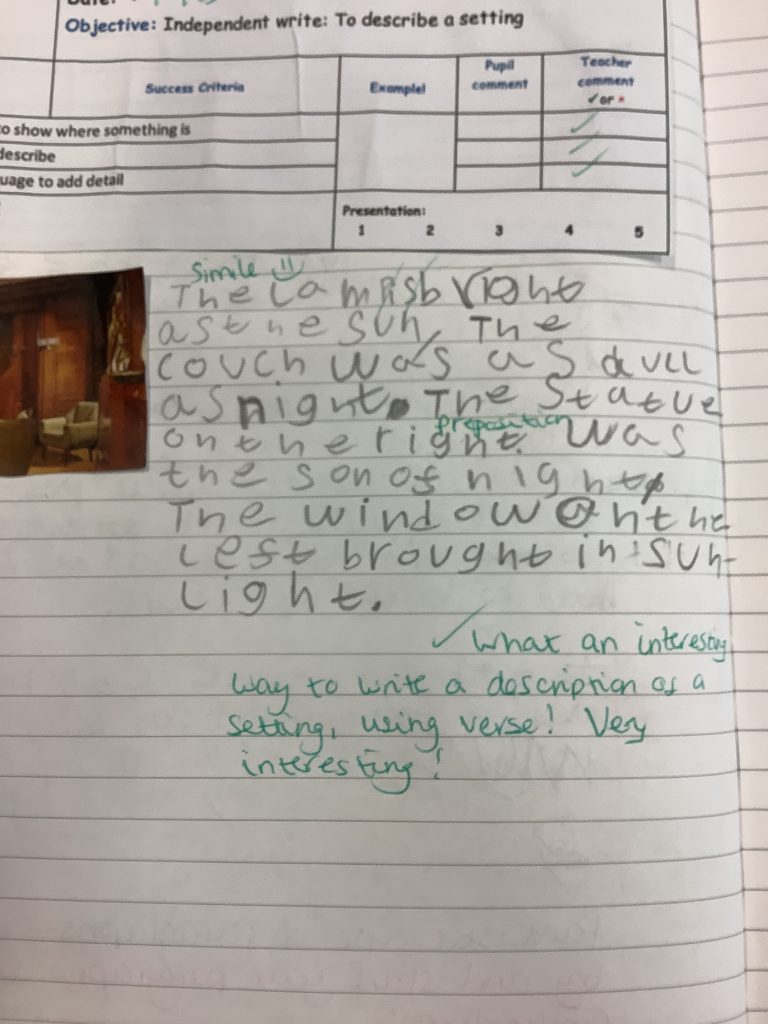 Objective: Independent write: To describe a setting
Success Criteria
Example!
Pupil comment
Teacher comment
✓ or ×
to show where something is
describe
uage to add detail
Presentation:
1 2 3 4 5
Simile
The Lamp is bright
as the sun, The
couch was as dull
as night. The Statue
preposition
on the right was
the son of night
The window on the
left brought in sun-
light.
✓ What an interesting
way to write a description of a
setting, using verse! Very
interesting!